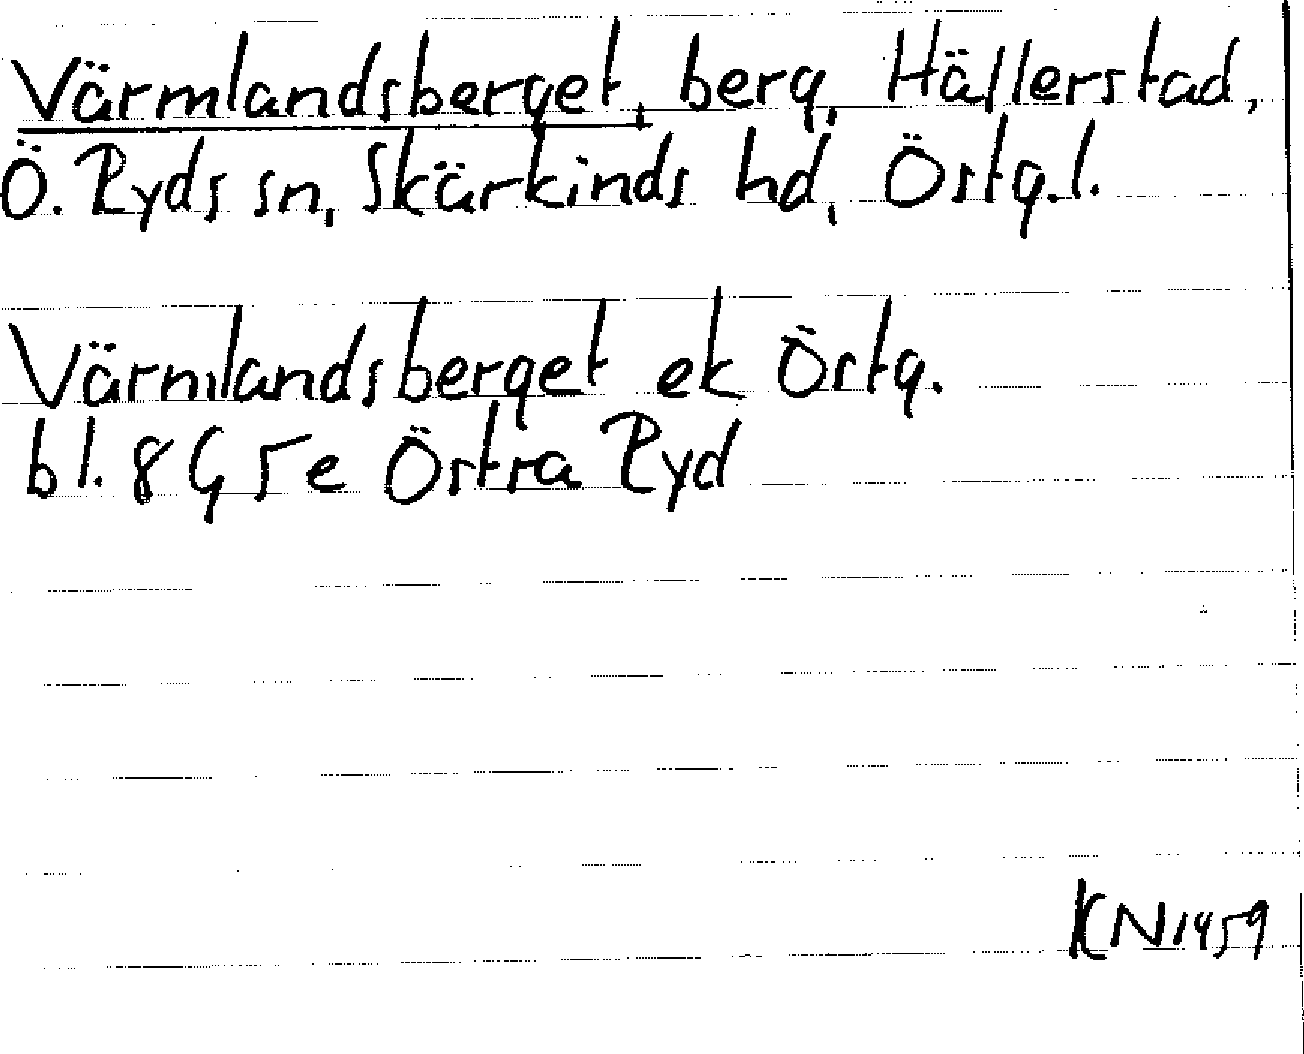 Värmlandsberget, berg, Hällerstad,
Ö. Ryds sn, Skärkinds hd, Östg.l.
Värmlandsberget ek Östg.
bl. 8G 5e Östra Ryd
KN1459